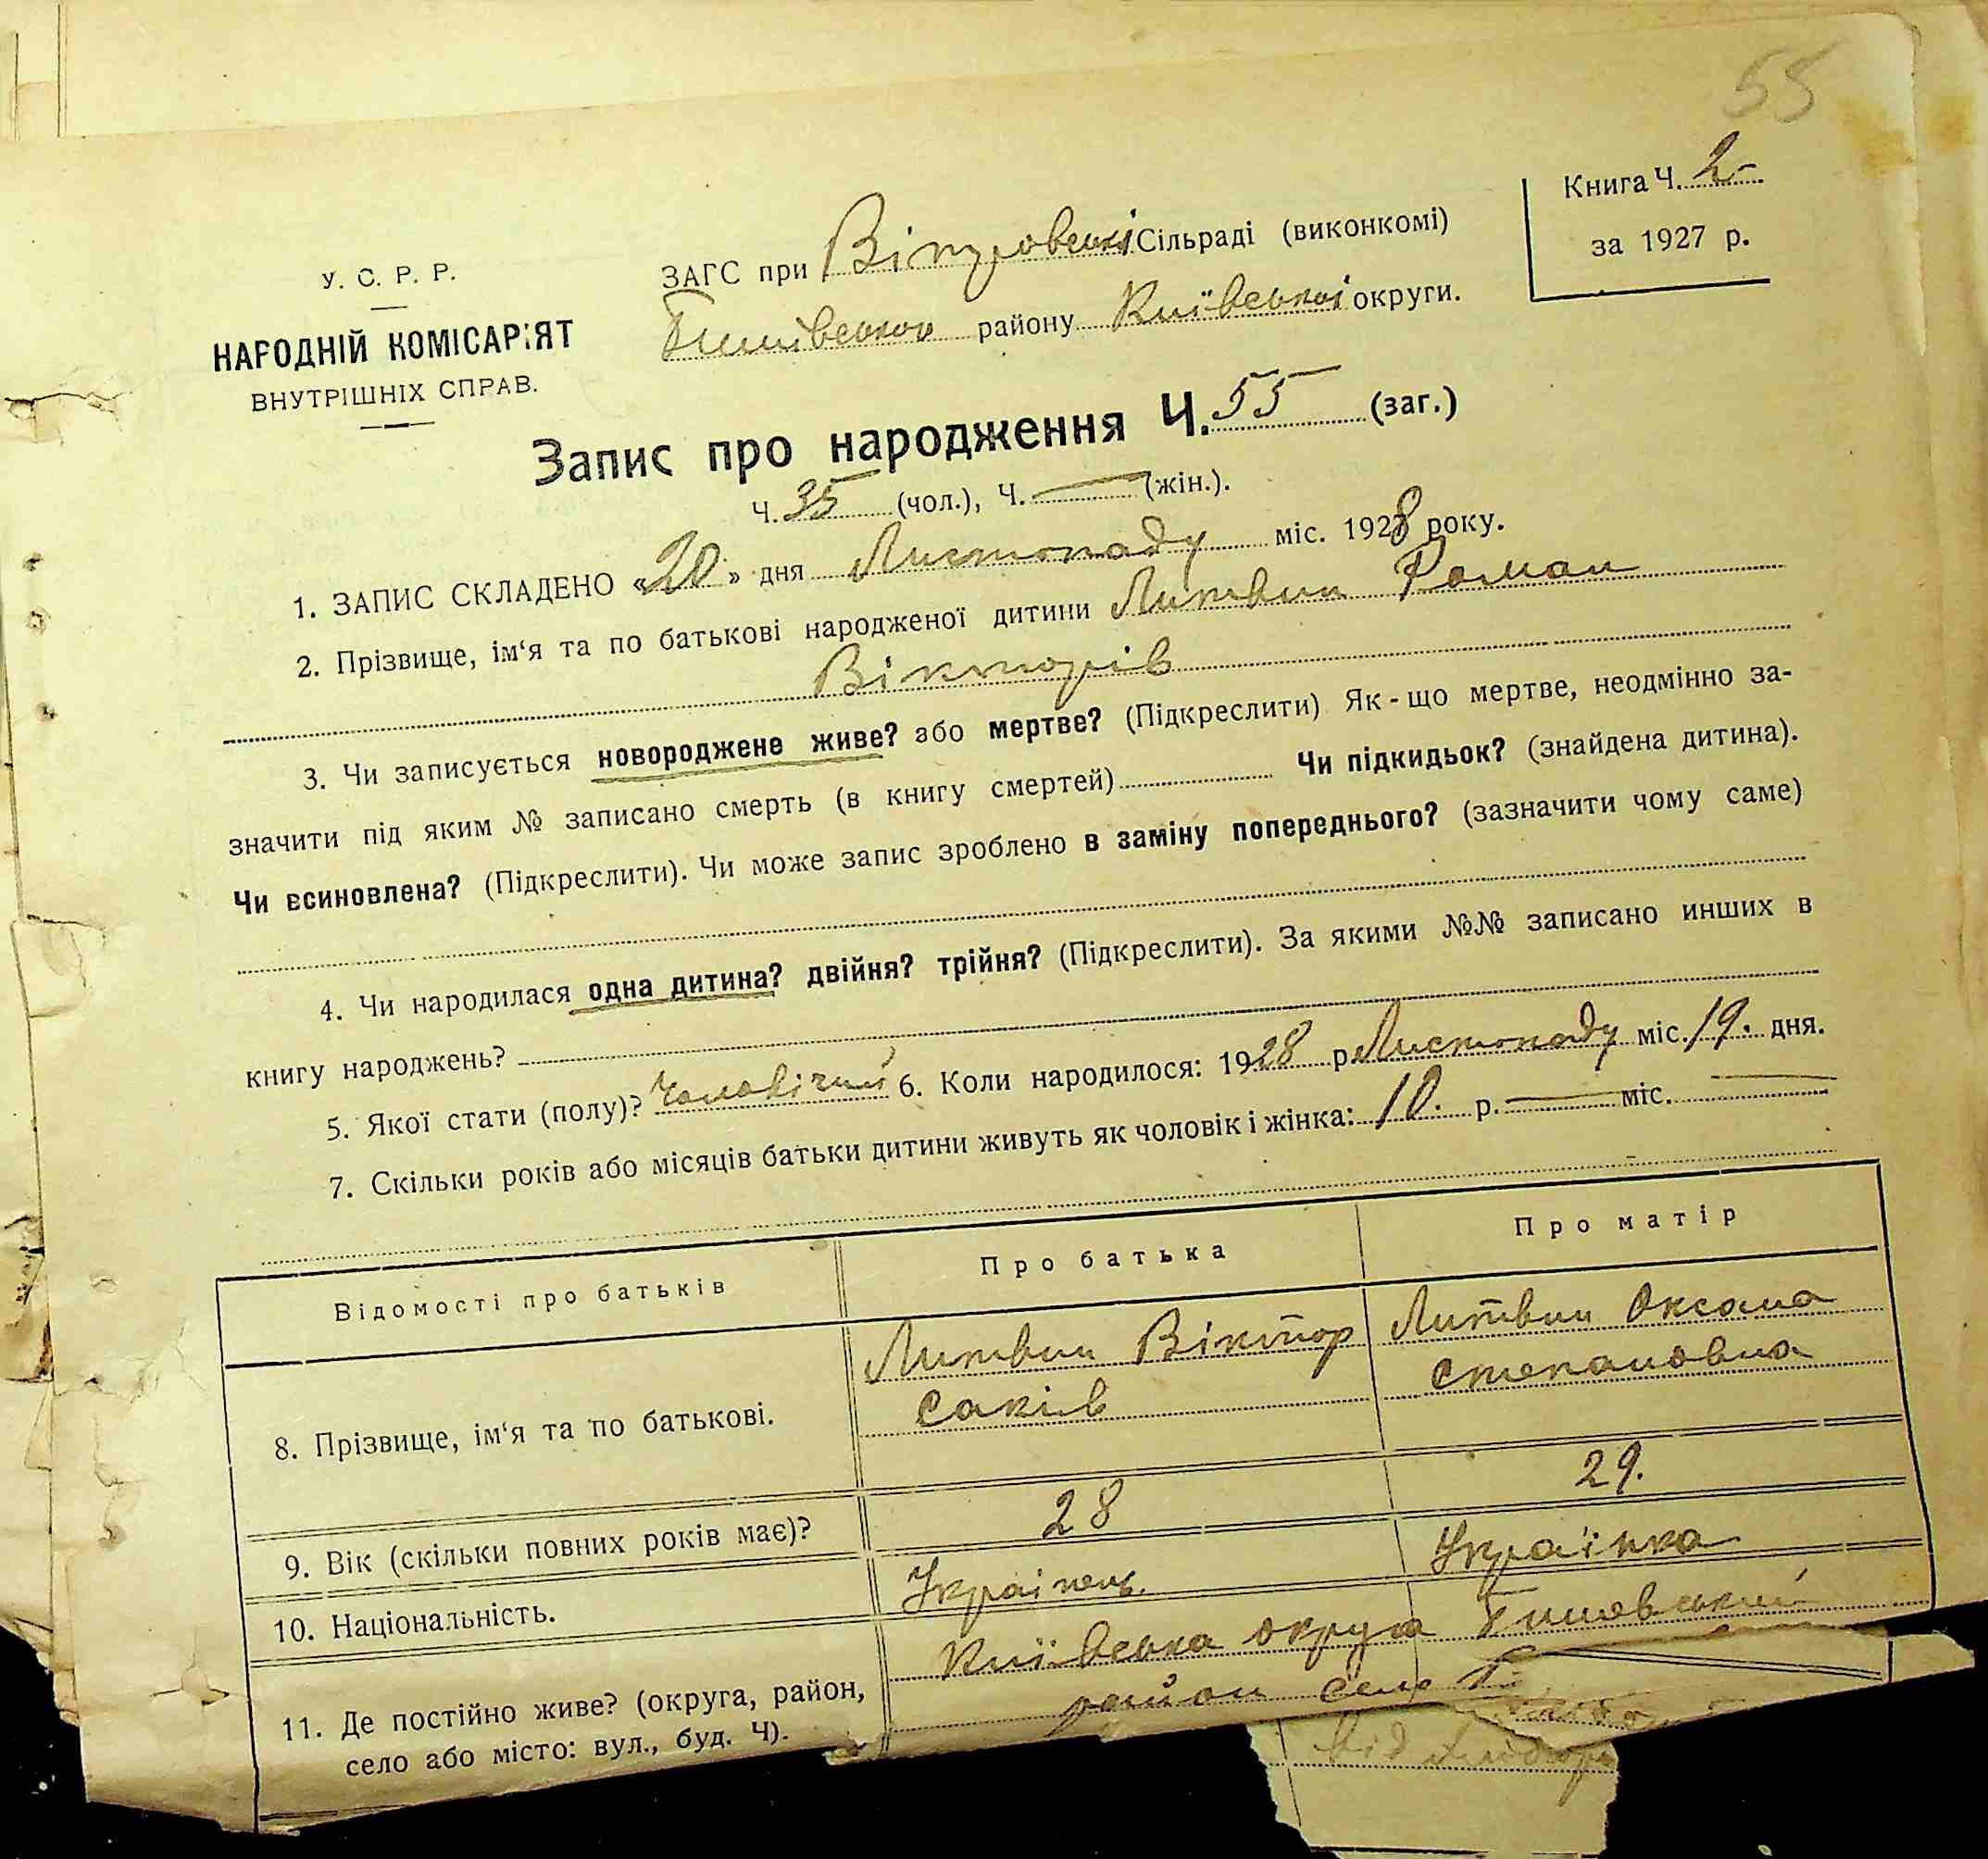 55
Книга Ч. 2
за 1927 р.
У. С. Р. Р.
НАРОДНІЙ КОМІСАР'ЯТ
ВНУТРІШНІХ СПРАВ.
ЗАГС при Сільраді (виконкомі)
району Київської округи.
Запис про народження Ч. 55 (заг.)
Ч. 35 (чол.), Ч. — (жін.).
1. ЗАПИС СКЛАДЕНО «20» дня Листопаду міс. 1928 року.
2. Прізвище, ім'я та по батькові народженої дитини Литвин Роман
Вікторів
3. Чи записується новороджене живе? або мертве? (Підкреслити) Як-що мертве, неодмінно за-
значити під яким № записано смерть (в книгу смертей) Чи підкидьок? (знайдена дитина).
Чи всиновлена? (Підкреслити). Чи може запис зроблено в заміну попереднього? (зазначити чому саме)
4. Чи народилася одна дитина? двійня? трійня? (Підкреслити). За якими №№ записано инших в
книгу народжень?
5. Якої стати (полу)? Чоловічий 6. Коли народилося: 1928 р. Листопаду міс. 19. дня.
7. Скільки років або місяців батьки дитини живуть як чоловік і жінка: 10. р. — міс. —
Відомості про батьків Про батька Про матір
8. Прізвище, ім'я та по батькові. Литвин Віктор Саків Литвин Оксана Степановна
9. Вік (скільки повних років має)? 28 29.
10. Національність. Українець Українка
11. Де постійно живе? (округа, район, Київська округа
село або місто: вул., буд. Ч). район село